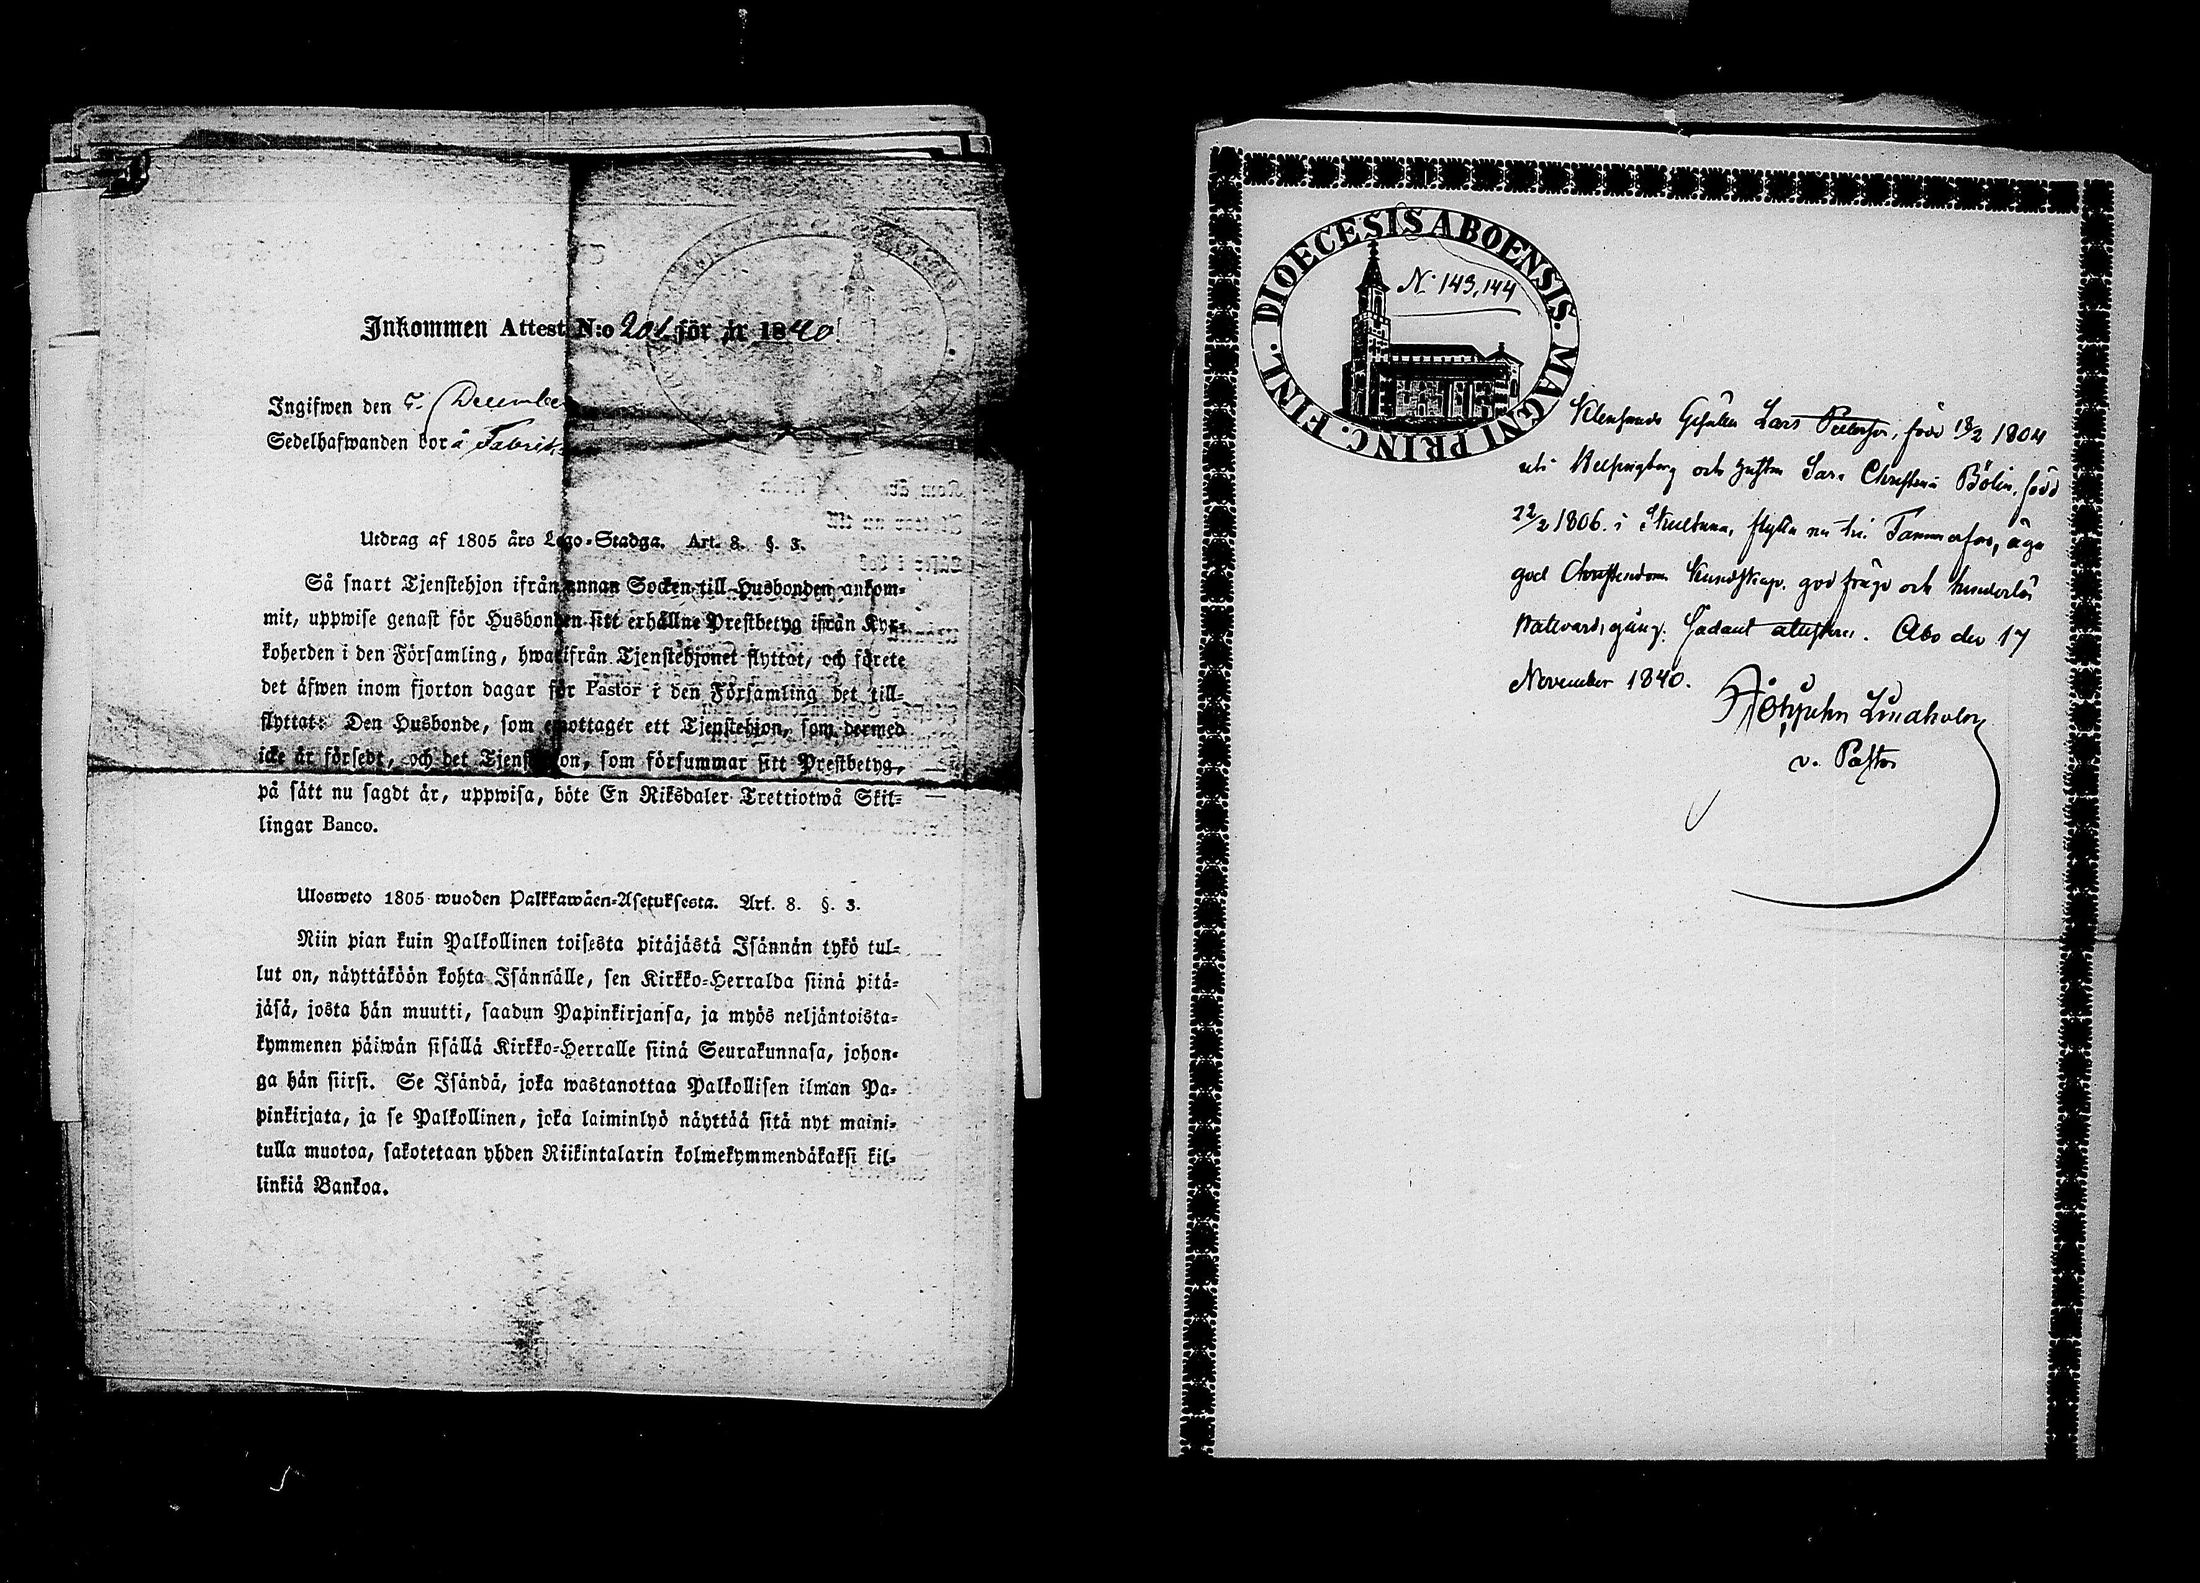 Inkommen Attest N:o 201 för år 1840.
Ingifwen den 5. December
Sedelhafwanden bor å Fabrik
Utdrag af 1805 års Lego-Stadga. Art. 8. §. 3.
Så snart Tjenstehjon ifrån annan Socken till Husbonden ankom-
mit, uppwise genast för Husbonden sitt erhållne Prestbetyg ifrån Kyr-
koherden i den Församling, hwarifrån Tjenstehjonet flyttat, och förete
det äfwen inom fjorton dagar för Pastor i den Församling det till-
flyttat. Den Husbonde, som emottager ett Tjenstehjon, som dermed
icke är försedt, och det Tjenstehjon, som försummar sitt Prestbetyg,
på sätt nu sagdt är, uppwisa, böte En Riksdaler Trettiotwå Skil-
lingar Banco.
Ulosweto 1805 wuoden Palkkawäen-Asetuksesta. Art. 8. §. 3.
Niin pian kuin Palkollinen toisesta pitäjästä Isännän tykö tul-
lut on, näyttäköön kohta Isännälle, sen Kirkko-Herralda siinä pitä-
jäsä, josta hän muutti, saadun Papinkirjansa, ja myös neljäntoista-
kymmenen päiwän sisällä Kirkko-Herralle siinä Seurakunnasa, johon-
ga hän siirsi. Se Isändä, joka wastanottaa Palkollisen ilman Pa-
pinkirjata, ja se Palkollinen, joka laiminlyö näyttää sitä nyt maini-
tulla muotoa, sakotetaan yhden Riikintalarin kolmekymmendäkaksi kil-
linkiä Bankoa.
DIOECESIS ABOENSIS. MAGNI PRINC. FINL.
N. 143, 144
Gesällen Lars Petterson, född 18/2 1804
uti Helsingborg och hustrun Sara Christina Bölin, född
22/2 1806. i flytta nu till Tammerfors, äga
god Christendoms kundskap, god frägd och hinderlös
Nattvardsgång. Sådant attesteras. Åbo den 17
November 1840.
Lindholm
v. Pastor